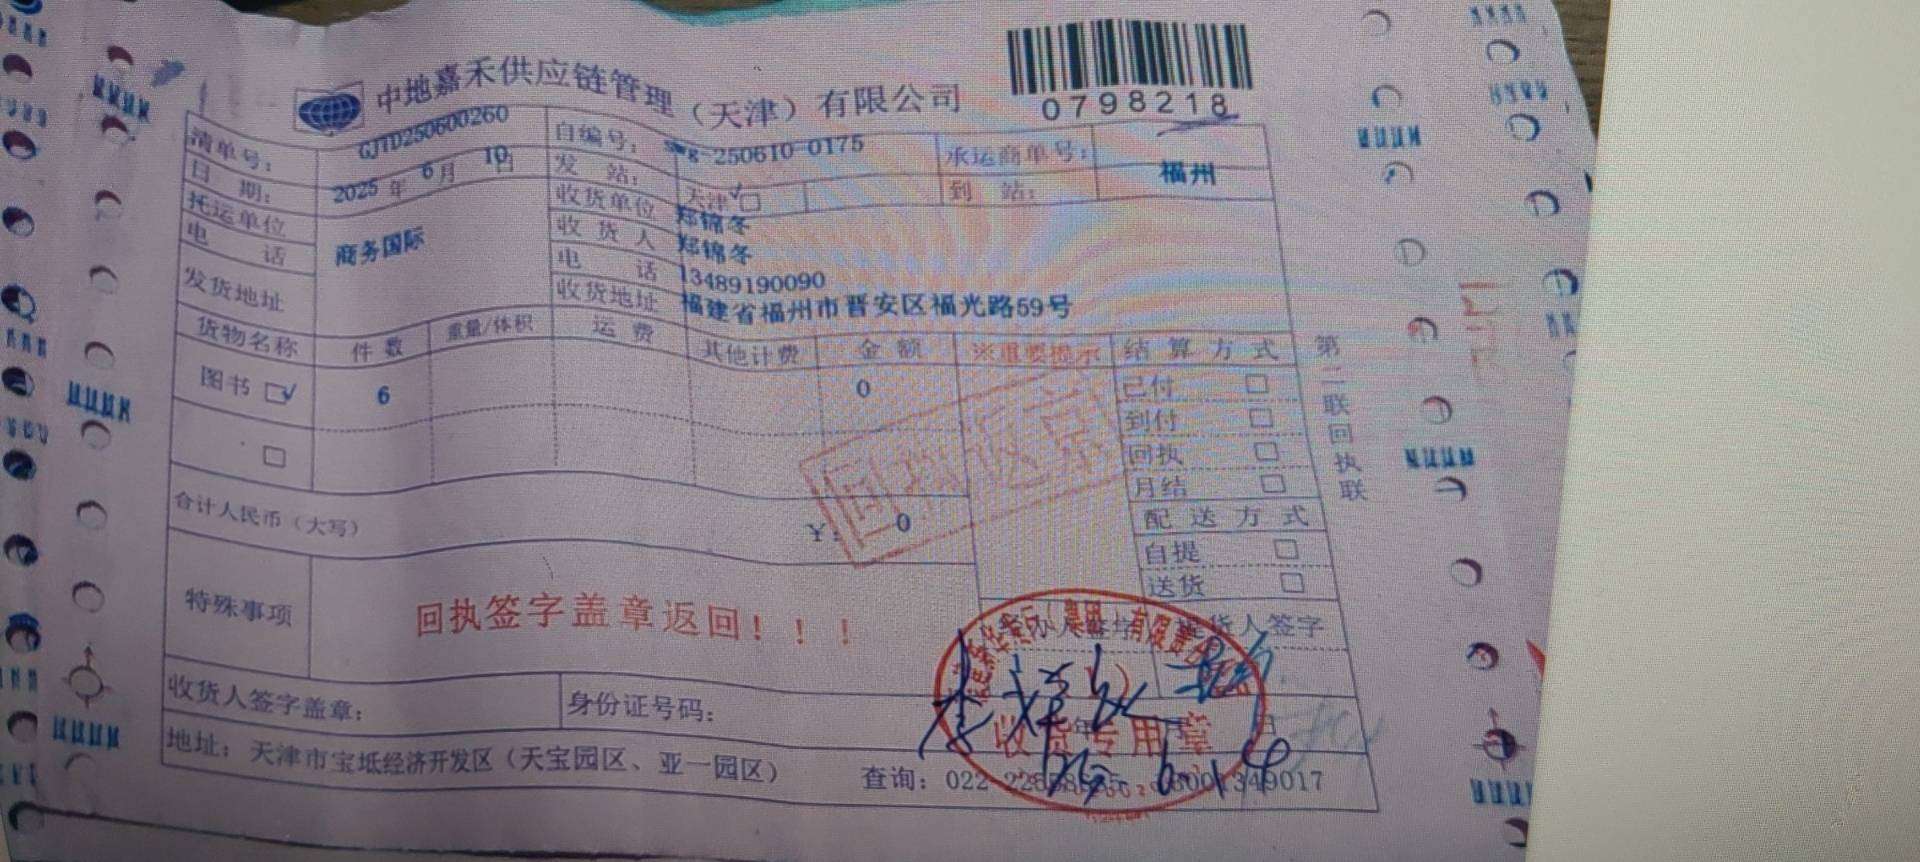 中地嘉禾供应链管理（天津）有限公司
0798218
清单号： GJTD250600260 自编号： swg-250610-0175 承运商单号：
日 期： 2025 年 6月 10日 发 站： 天津 到 站： 福州
托运单位 商务国际 收货单位 郑锦冬
电 话 收 货 人 郑锦冬
电 话 13489190090
发货地址 收货地址 福建省福州市晋安区福光路59号
货物名称 件 数 重量/体积 运 费 其他计费 金 额 ※重要提示 结 算 方 式
图书 6 0 已付
到付
回执
月结
合计人民币（大写） ¥： 0 配 送 方 式
自提
送货
回执返京
特殊事项 回执签字盖章返回！！！
货人签字
收货人签字盖章： 身份证号码：
收货专用章
地址：天津市宝坻经济开发区（天宝园区、亚一园区） 查询：022
第二联回执联